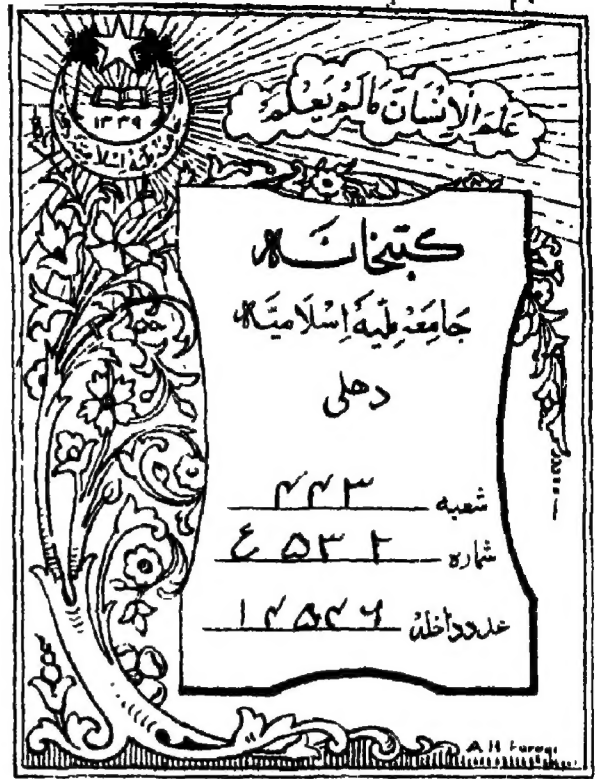 ۱۳۳۹
عَلَّمَ الْاِنْسَانَ مَالَمْ یَعْلَمْ
کتبخانہ
جَامِعَہ مِلِّیَہ اِسْلَامِیَّہ
دھلی
شعبہ ۴۴۳
شمارہ ۵۳۲ ع
عدد داخلہ ۱۴۵۴۶
A H Faroqi